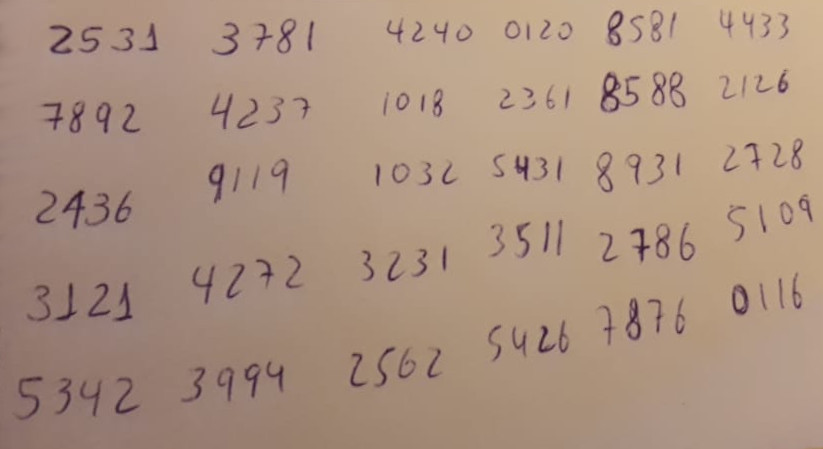 2531 3781 4240 0120 8581 4433
7892 4237 1018 2361 8588 2126
2436 9119 1032 5431 8931 2728
3121 4272 3231 3511 2786 5109
5342 3994 2562 5426 7876 0116